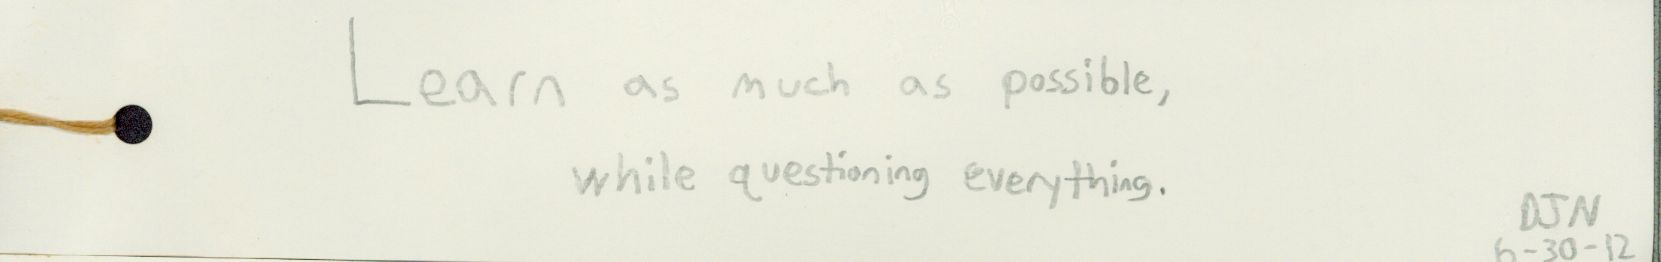 Learn as much as possible,
while questioning everything.
DJN
6-30-12